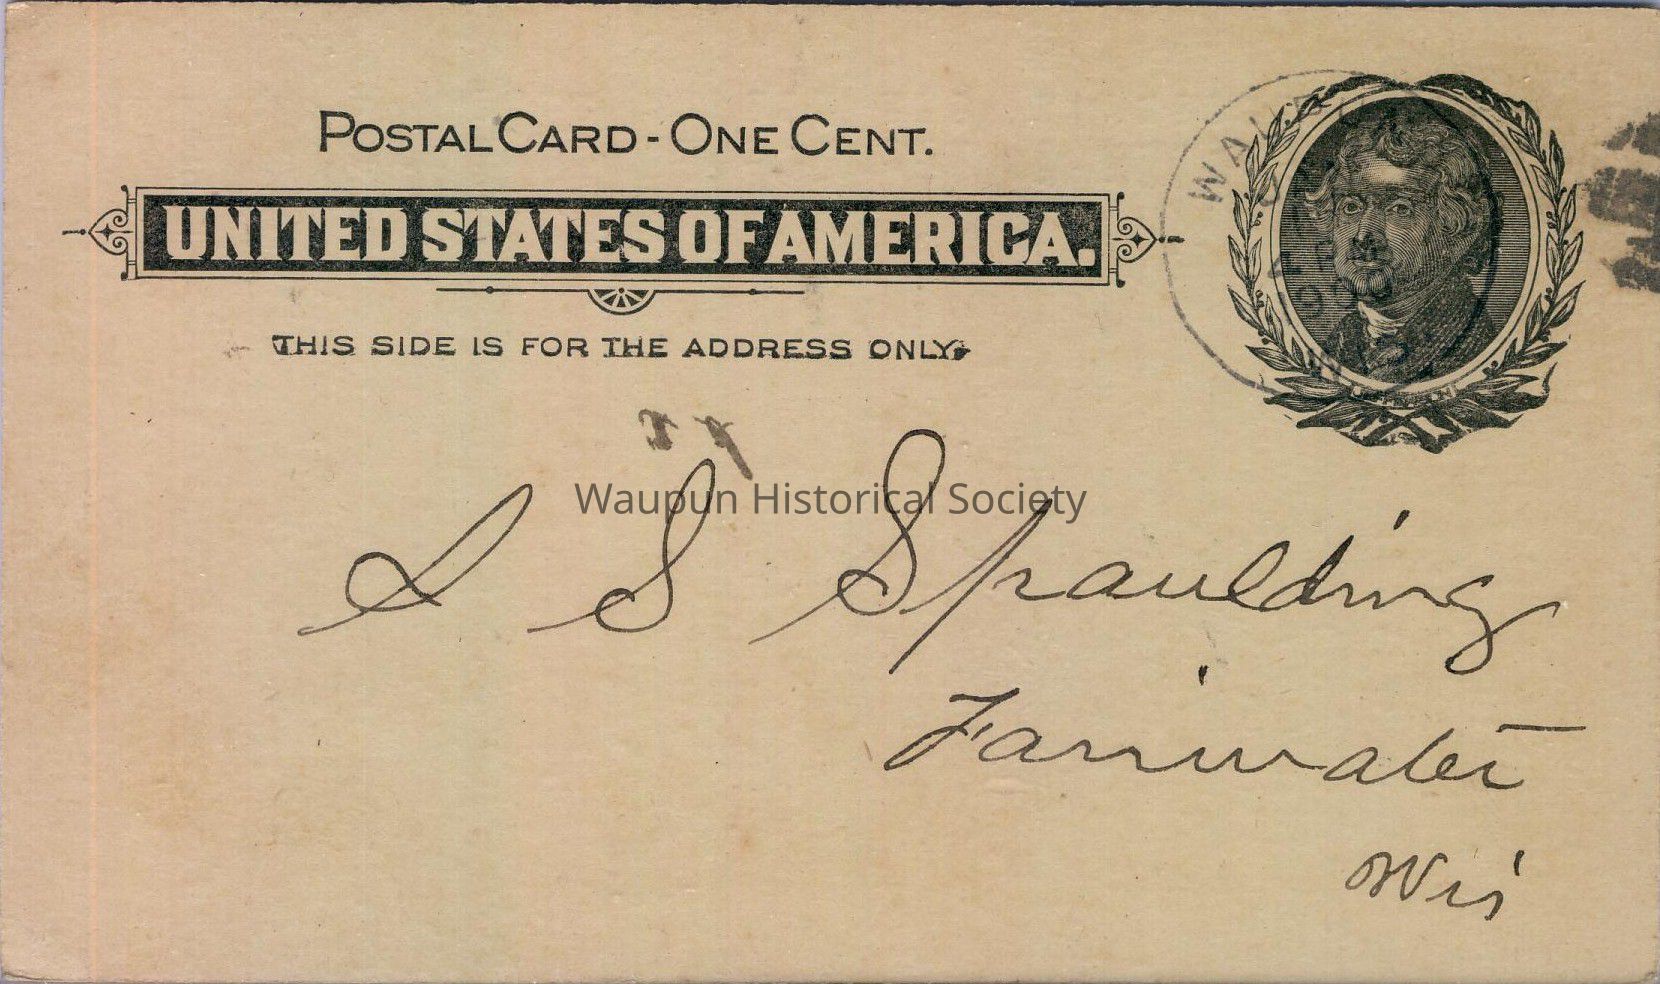 POSTAL CARD - ONE CENT.
UNITED STATES OF AMERICA.
THIS SIDE IS FOR THE ADDRESS ONLY.
Waupun Historical Society
S S Spaulding
Fairwater
Wis
WIS.